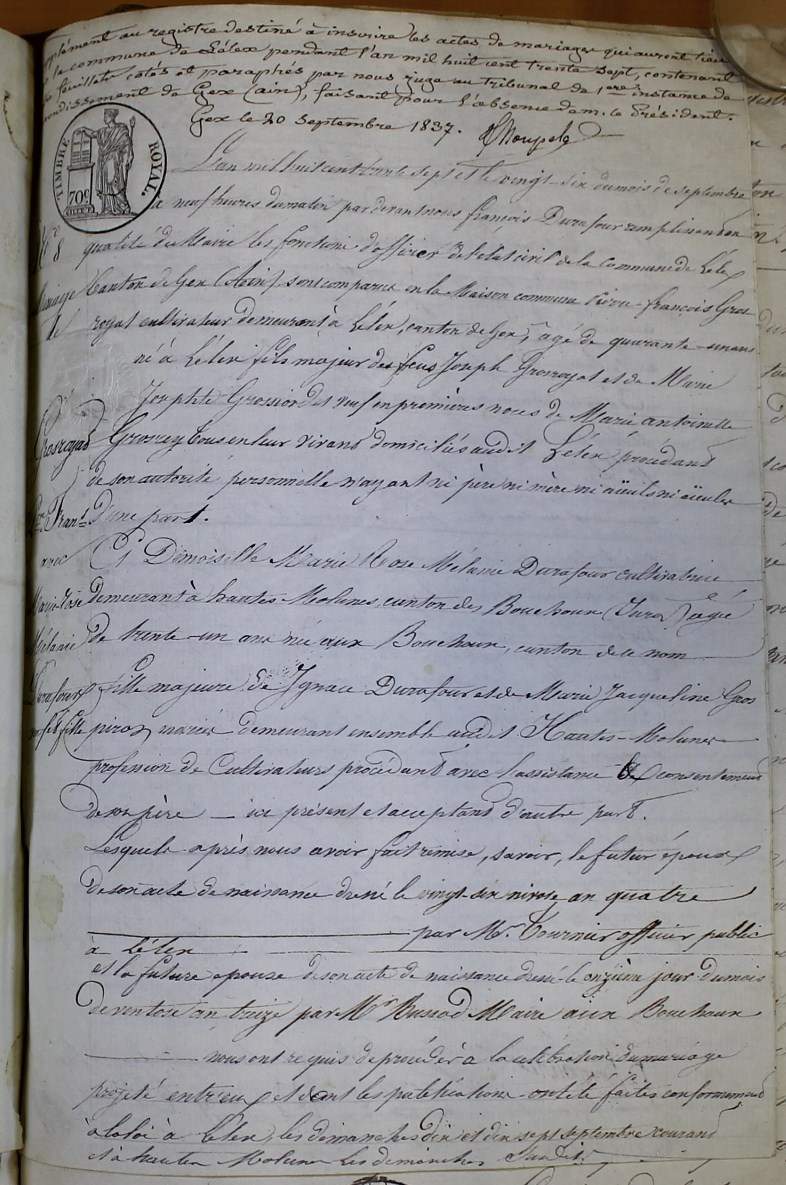 Supplément au registre destiné à inscrire les actes de mariages qui auront lieu
à la commune de Lélex pendant l'an mil huit cent trente sept, contenant
feuillets cotés et paraphés par nous juge au tribunal de 1ere instance de
l'arrondissement de Gex (ain), faisant pour l'absence de m. le Président.
Gex le 20 septembre 1837.
TIMBRE ROYAL.
70c
L'an mil huit cent trente sept et le vingt-six du mois de septembre
à neuf heures du matin par devant nous françois Durafour remplissant en
No 8
qualité de Maire les fonctions d'officier de l'état civil de la commune de Lélex
Mariage
Canton de Gex (Ain) sont comparus en la Maison commune Pierre-françois Gros
de
royat cultivateur demeurant à Lélex, canton de Gex, âgé de quarante-un ans
né à Lélex fils majeur des feus Joseph Grosroyat et de Marie
Josephte Grossiord et veuf en premières noces de Marie antoinette
Grosroyat
Grosrey tous en leur vivant domiciliés audit Lélex procédant
de son autorité personnelle n'ayant ni père ni mère ni aïeuls ni aïeules
Pre Frans
D'une part.
avec
Et Demoiselle Marie Rose Mélanie Durafour cultivatrice
Marie-Rose
demeurant à hautes-Molunes, canton des Bouchoux (Jura) âgée
Mélanie
De trente-un ans née aux Bouchoux, canton de ce nom
Durafour
fille majeure de Ignace Durafour et de Marie Jacqueline Gros
fille
piron mariés demeurant ensemble audit Hautes-Molunes
profession de Cultivateurs procédant avec l'assistance & consentement
de son père — ici présent et acceptant d'autre part.
Lesquels après nous avoir fait remise, savoir, le futur époux
de son acte de naissance dressé le vingt-six nivose an quatre
par Mr. Tournier officier public
à Lélex
et la future épouse de son acte de naissance dressé le onzième jour du mois
de ventose an treize par Mr Maire aux Bouchoux
nous ont requis de procéder à la célébration du mariage
projeté entr'eux et dont les publications ont été faites conformément
à la loi à Lélex, les dimanches dix et dix sept septembre courant
et à hautes Molunes les dimanches susdits